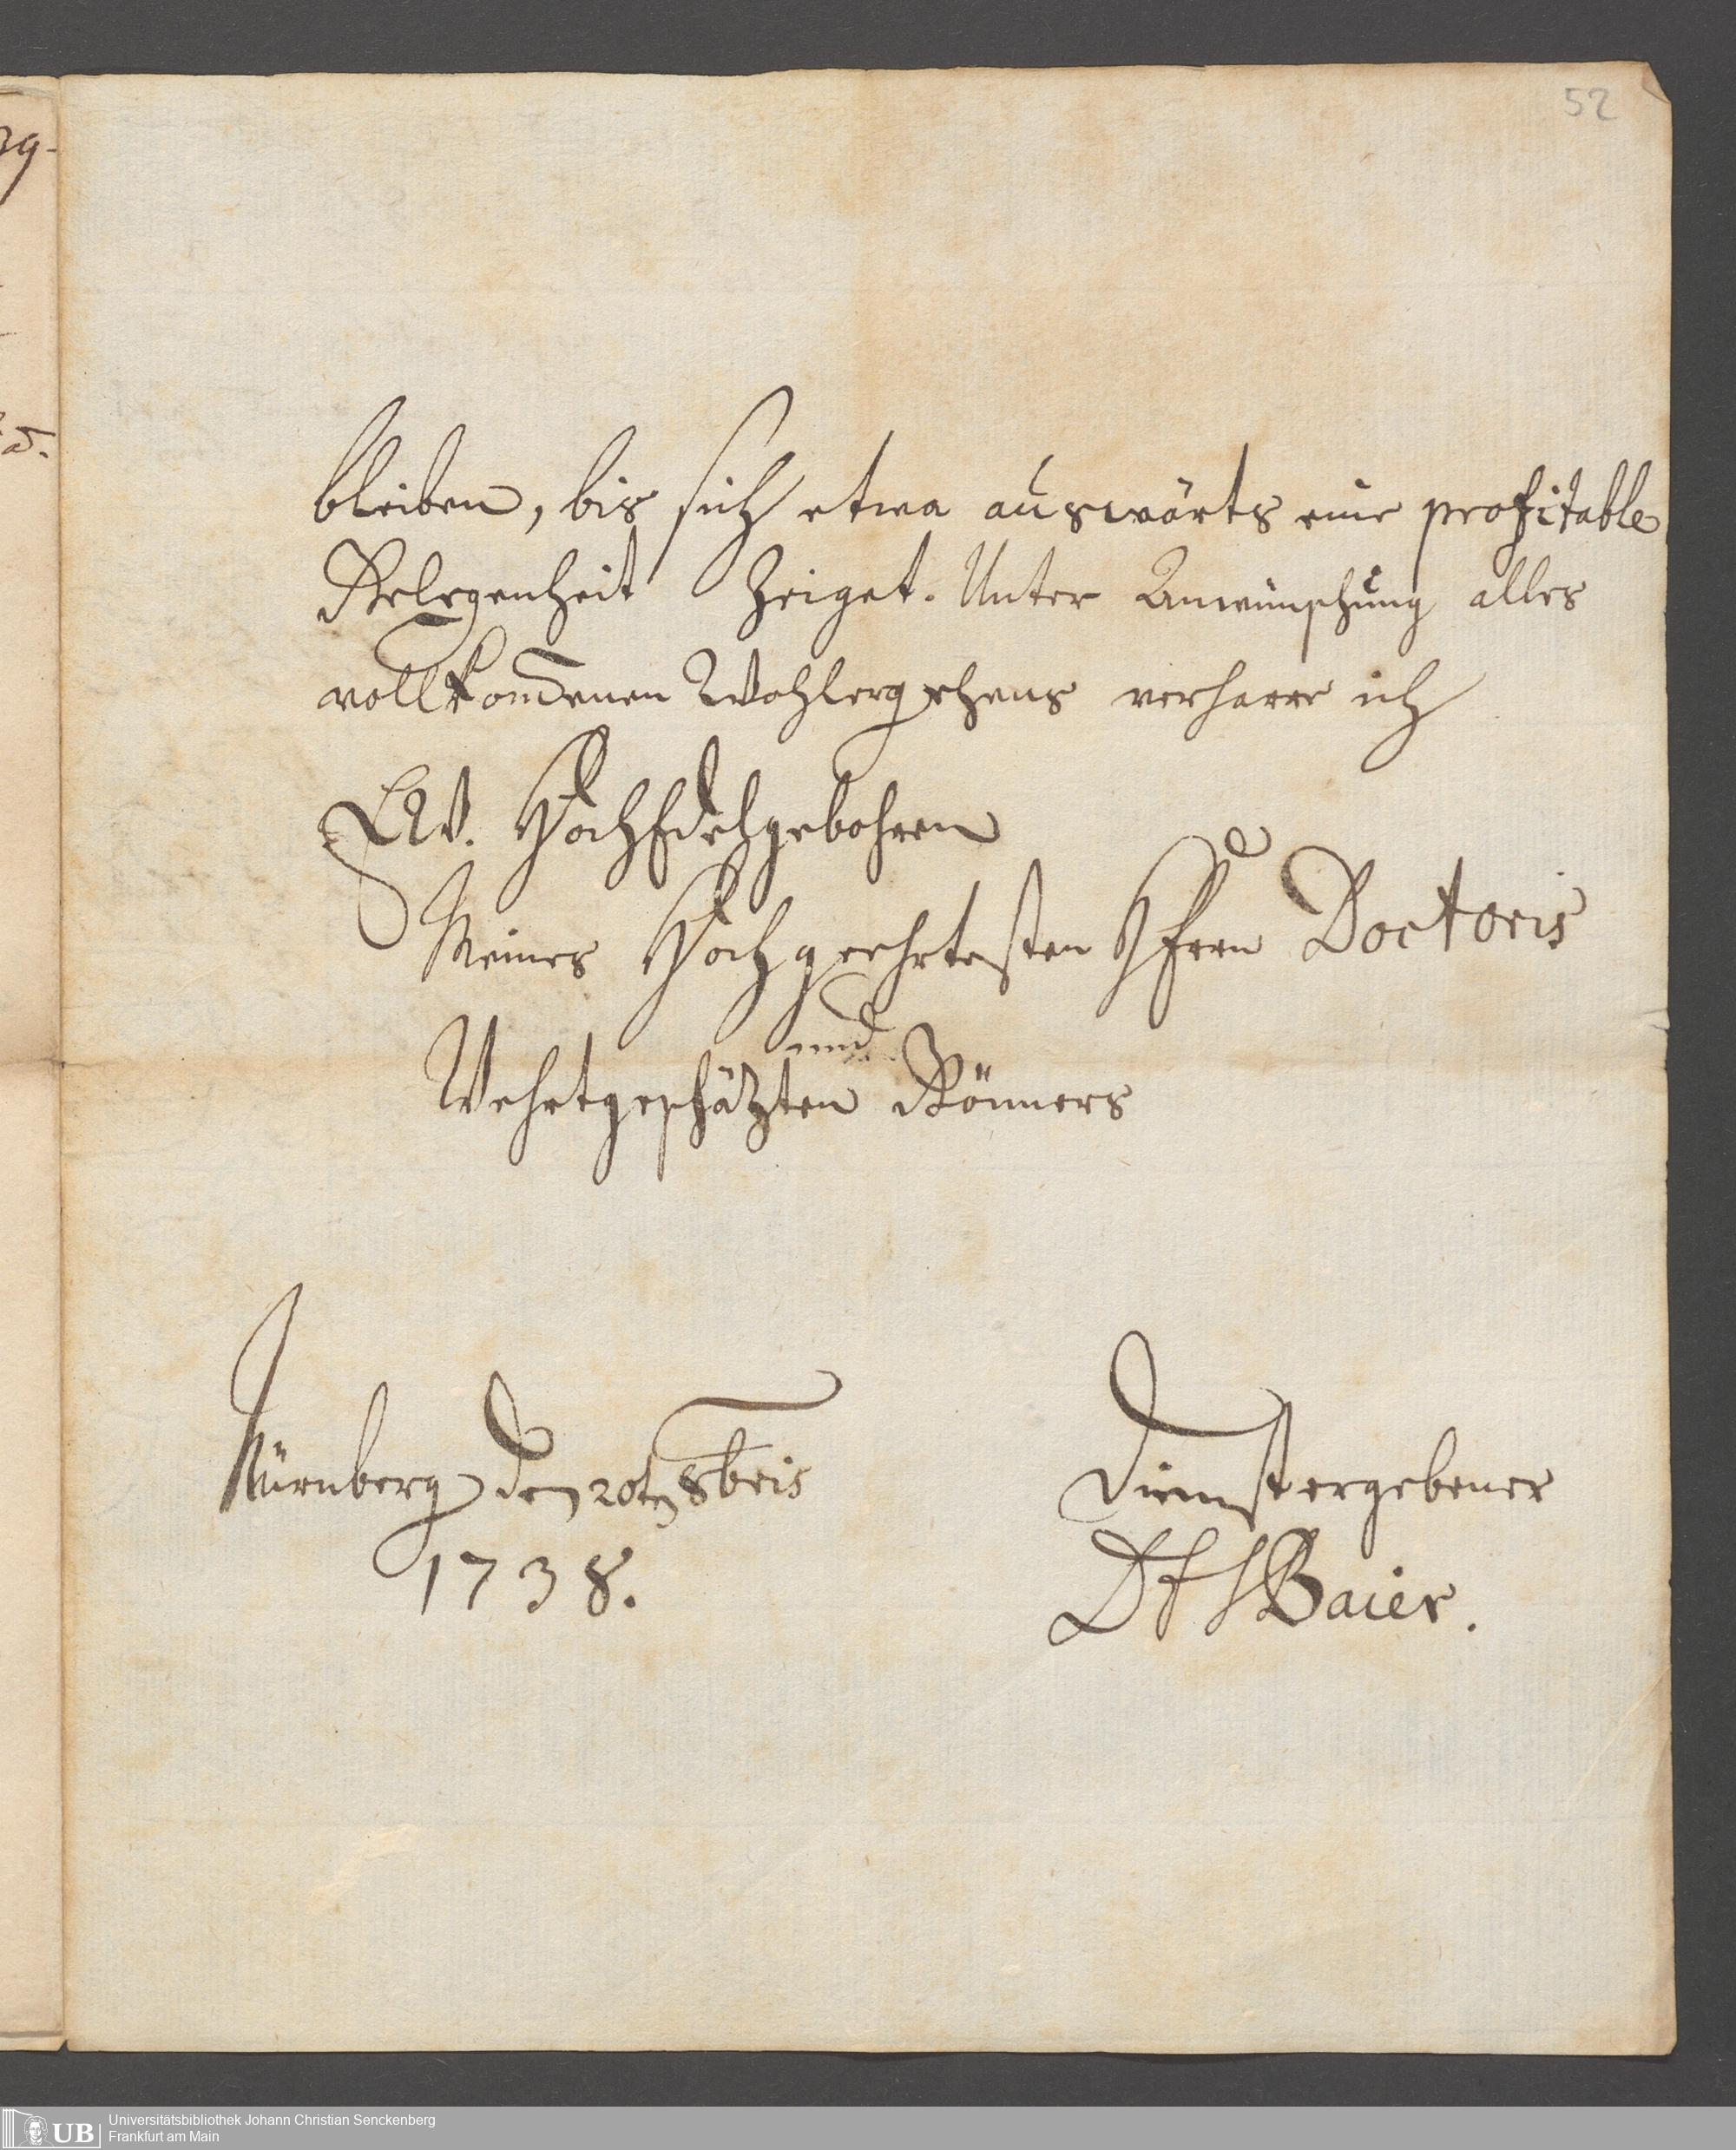 52
bleiben, bis sich etwa auswärts eine profitable
Gelegenheit Zeiget. Unter Anwünschung alles
vollkom̄enen Wohlergehens verharre ich
EW. HochEdelgebohren
Meines Hochgeehrtesten HErrn Doctoris
und
Wehrtgeschätzten Gönners
Nürnberg den 20ten 8bris
1738.
Dienstergebener
Baier.
UB
Universitätsbibliothek Johann Christian Senckenberg
Frankfurt am Main